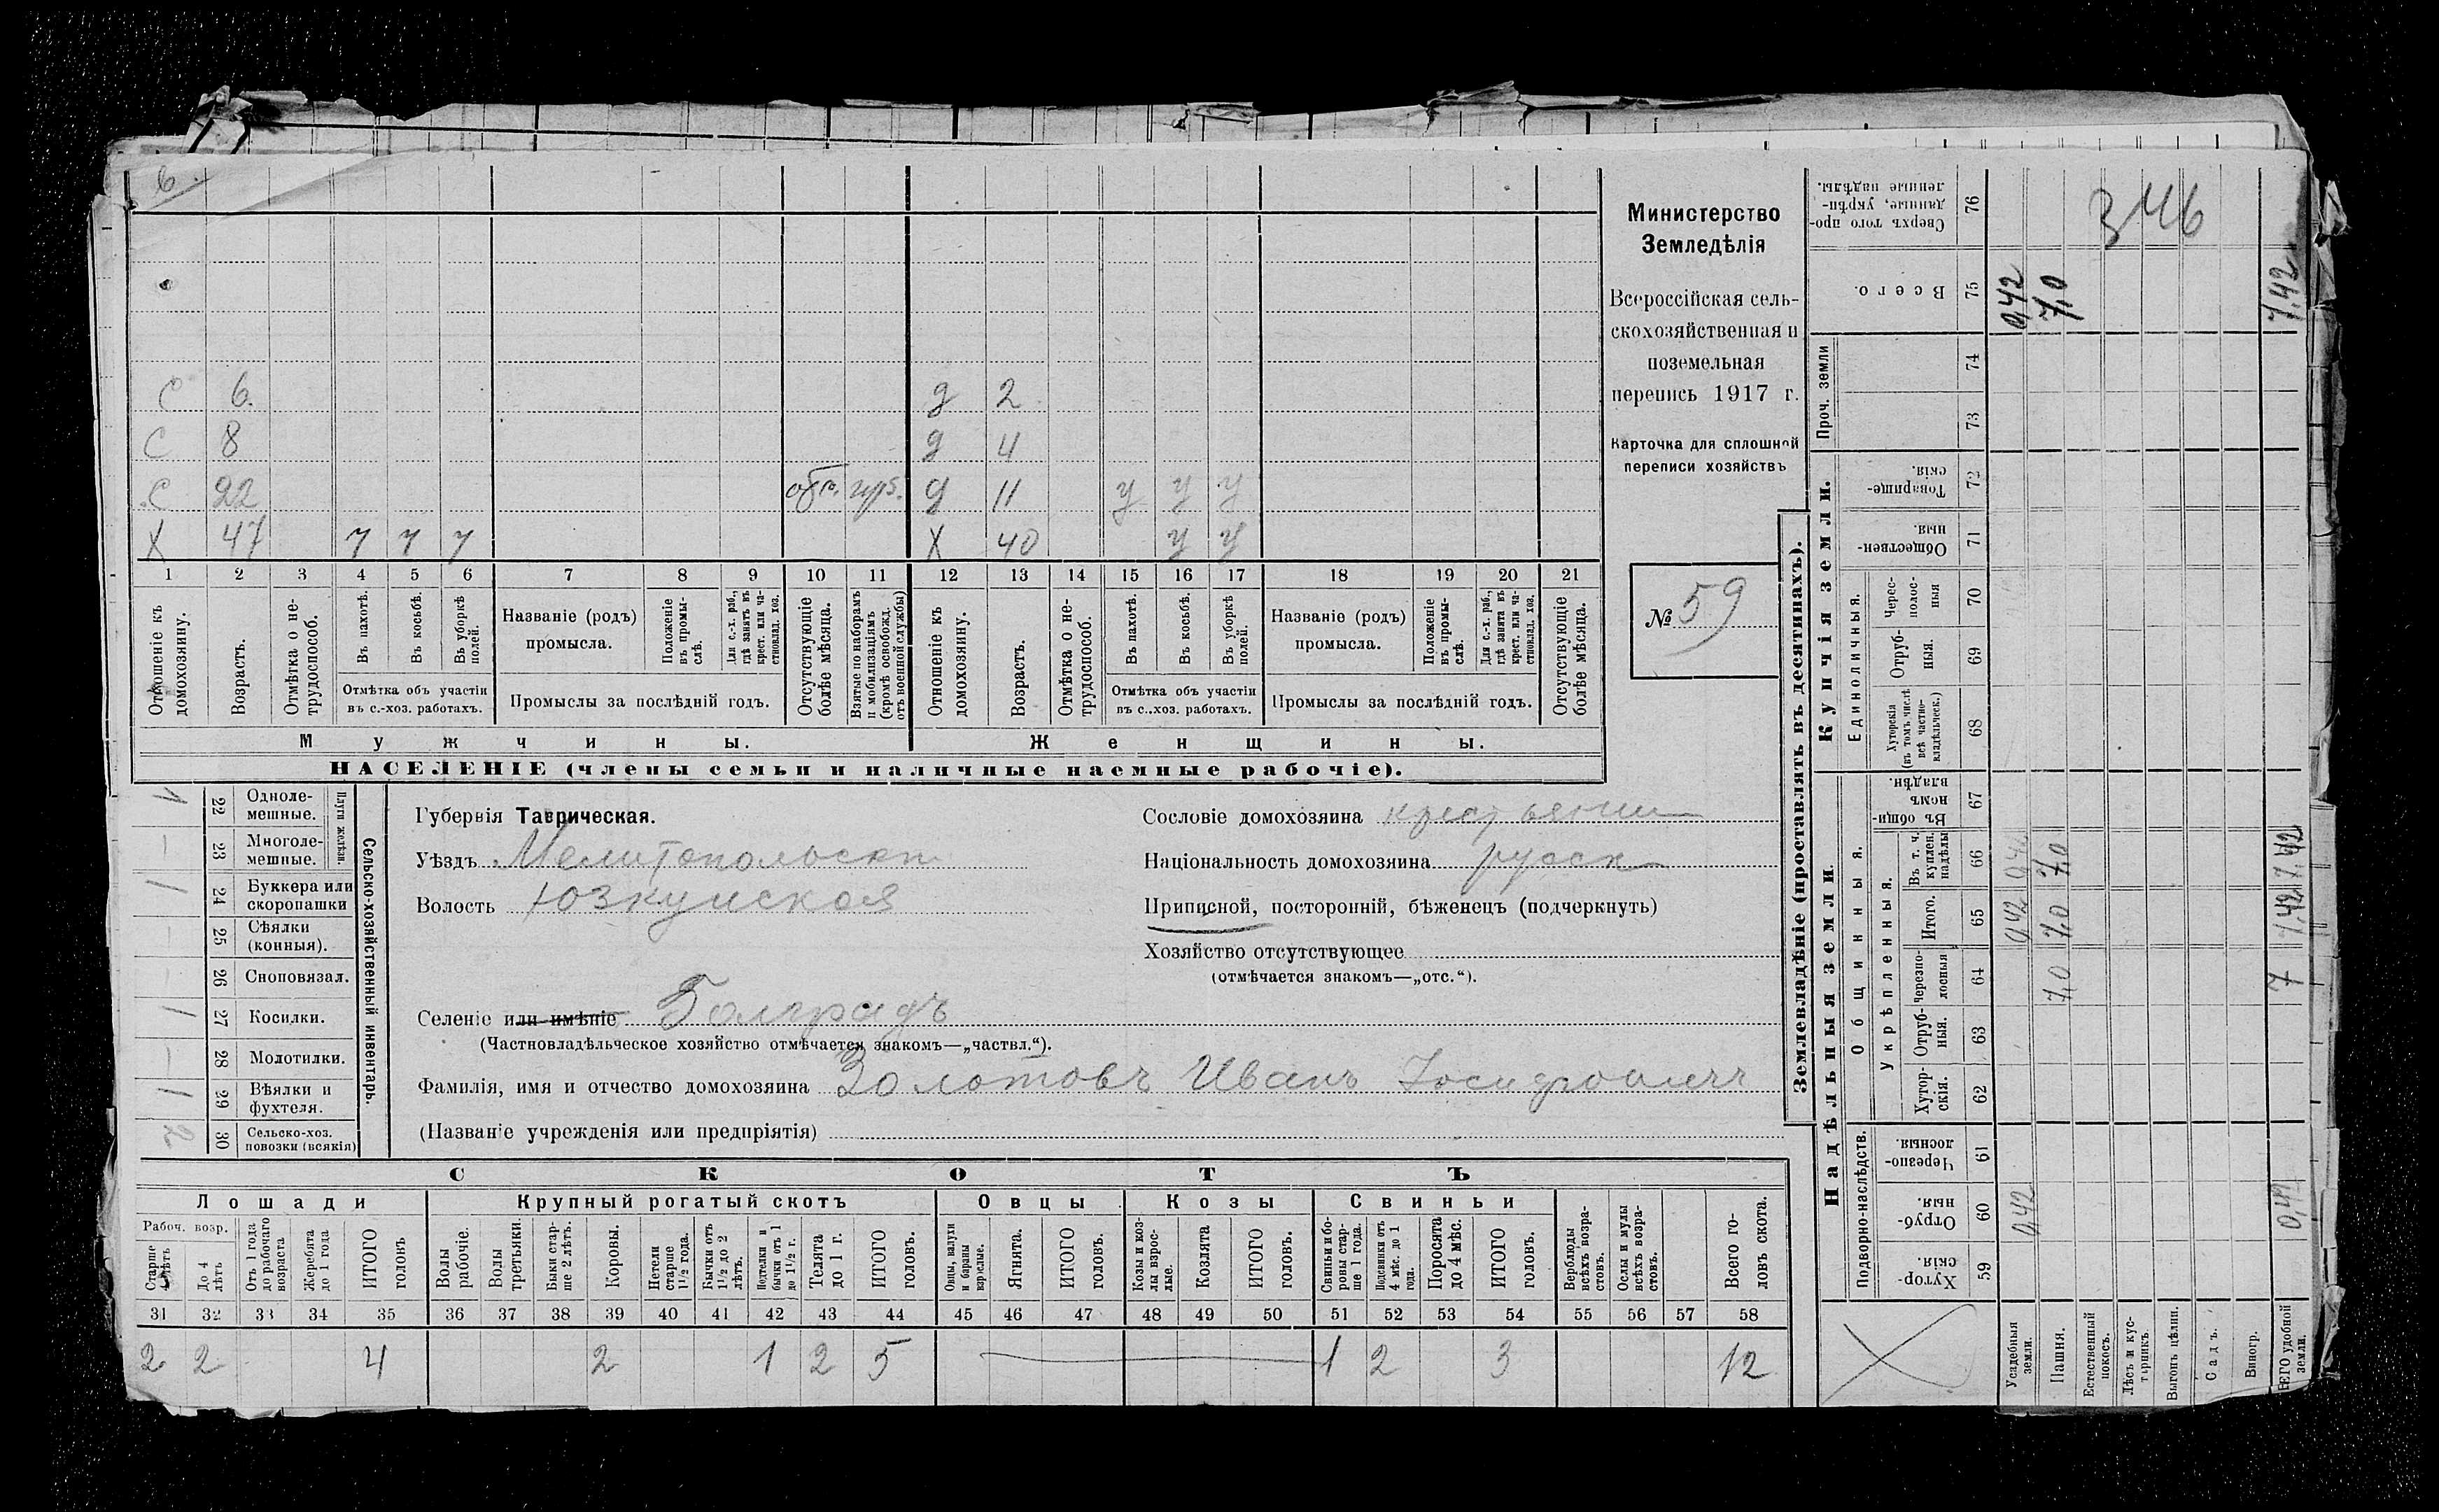 6.
С 6. д 2
С 8 д 4
С 22 д 11 у у у
Х 47 Х 40 у у
1 2 3 4 5 6 7 8 9 10 11 12 13 14 15 16 17 18 19 20 21
Отношеніе къ домохозяину.
Возрастъ.
Отмѣтка о не-
трудоспособ.
Въ пахотѣ.
Въ косьбѣ.
Въ уборкѣ полей.
Отмѣтка объ участіи
въ с.-хоз. работахъ.
Названіе (родъ)
промысла.
Положеніе въ промы-
слѣ.
Для с.-х. раб., гдѣ занятъ въ крест. или ча-
стновлад. хоз.
Промыслы за послѣдній годъ.
Отсутствующіе
болѣе мѣсяца.
Взятые по наборамъ
и мобилизаціямъ
(кромѣ освобожд.
отъ военной службы)
Отношеніе къ
домохозяину.
Возрастъ.
Отмѣтка о не-
трудоспособ.
Въ пахотѣ.
Въ косьбѣ.
Въ уборкѣ полей.
Отмѣтка объ участіи
въ с.-хоз. работахъ.
Названіе (родъ)
промысла.
Положеніе въ промы-
слѣ.
Для с.-х. раб., гдѣ занята въ крест. или ча-
стновлад. хоз.
Промыслы за послѣдній годъ.
Отсутствующіе
болѣе мѣсяца.
Мужчины.
Женщины.
НАСЕЛЕНІЕ (члены семьи и наличные наемные рабочіе).
Министерство
Земледѣлія
Всероссійская сель-
скохозяйственная и
поземельная
перепись 1917 г.
Карточка для сплошной
переписи хозяйствъ
№ 59
Сельско-хозяйственный инвентарь.
Плуги желѣзн.
22 Одноле-
мешные.
— 23 Многоле-
мешные.
1 24 Буккера или
скоропашки
— 25 Сѣялки
(конныя).
— 26 Сноповязал.
1 27 Косилки.
— 28 Молотилки.
1 29 Вѣялки и
фухтеля.
2 30 Сельско-хоз.
повозки (всякія)
Губернія Таврическая.
Уѣздъ Мелитопольск
Волость Юзкуйская
Сословіе домохозяина крестьянин
Національность домохозяина русск
Приписной, посторонній, бѣженецъ (подчеркнуть)
Хозяйство отсутствующее
(отмѣчается знакомъ—„отс.“).
Селеніе или имѣніе Болградъ
(Частновладѣльческое хозяйство отмѣчается знакомъ—„частвл.“).
Фамилія, имя и отчество домохозяина Золотовъ Иванъ
(Названіе учрежденія или предпріятія)
СКОТЪ
Лошади Крупный рогатый скотъ Овцы Козы Свиньи
Рабоч. возр.
Старше 4 лѣтъ
До 4 лѣтъ
Отъ 1 года до рабочаго возраста
Жеребята до 1 года
ИТОГО головъ
Волы рабочіе.
Волы третьяки.
Быки стар-
ше 2 лѣтъ.
Коровы.
Нетели старше 1½ года.
Бычки отъ 1½ до 2 лѣтъ.
Подтелки и бычки отъ 1 до 1½ г.
Телята до 1 г.
ИТОГО головъ.
Овцы, валухи и бараны взрослые.
Ягнята.
ИТОГО головъ.
Козы и коз-
лы взрос-
лые.
Козлята
ИТОГО головъ.
Свиньи и бо-
ровы стар-
ше 1 года.
Подсвинки отъ 4 мѣс. до 1 года.
Поросята до 4 мѣс.
ИТОГО головъ.
Верблюды всѣхъ возра-
стовъ.
Ослы и мулы всѣхъ возра-
стовъ.
Всего го-
ловъ скота.
31 32 33 34 35 36 37 38 39 40 41 42 43 44 45 46 47 48 49 50 51 52 53 54 55 56 57 58
2 2 4 2 1 2 5 1 2 3 12
Землевладѣніе (проставлять въ десятинахъ).
Надѣльныя земли.
Купчія земли.
Проч. земли
Подворно-наслѣдств.
Общинныя.
Укрѣпленныя.
Единоличныя.
Сверхъ того про-
данные, укрѣп-
ленные надѣлы. 76
346
Всего. 75 0,42 7,0 7,42
74
73
Товарище-
скія. 72
Обществен-
ныя 71
Черес-
полос-
ныя 70
Отруб-
ныя. 69
Хуторскія
(въ томъ числѣ
всѣ частно-
владѣльческ.) 68
Въ общи-
номъ
владѣн. 67
Въ т. ч.
куплен.
надѣлы 66 0,42 7,0 7,42
Итого. 65 0,42 7,0 7,42
Черезпо-
лосныя 64 7,0 7
Отруб-
ныя. 63
Хутор-
скія. 62
Черезпо-
лосныя. 61
Отруб-
ныя. 60 0,42 0,42
Хутор-
скія. 59
Усадебныя земли.
Пашня.
Естественный покосъ.
Лѣсъ и кус-
тарникъ.
Выгонъ цѣлин.
Садъ.
Виногр.
ВСЕГО удобной земли.